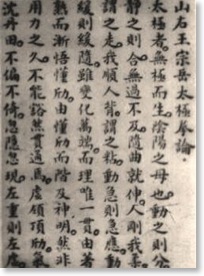 山右王宗岳太極拳論。
太極者。無極而生。陰陽之母也。動之則分
靜之則合。無過不及。隨曲就伸。人剛我柔
謂之走。我順人背。謂之粘。動急則急應。動
緩則緩隨。雖變化萬端。而理唯一貫。由著
熟而漸悟懂劤。由懂劤而階及神明。然非
用力之久。不能豁然貫通焉。虛領頂劤。氣
沈丹田。不偏不倚。忽隱忽現。左重則左虛